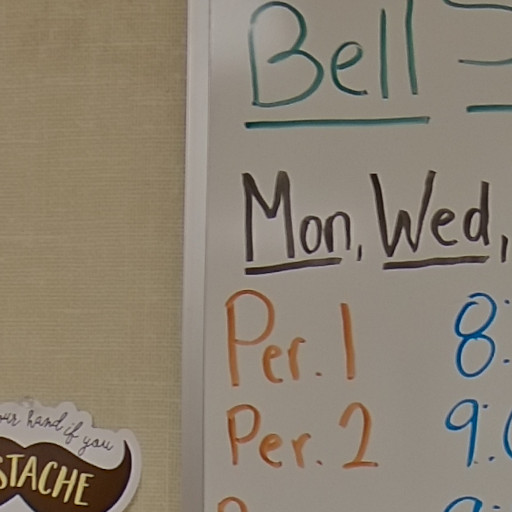 Bell S
Mon, Wed,
Per. 1 8:
Per. 2 9:0
hand if you
STACHE